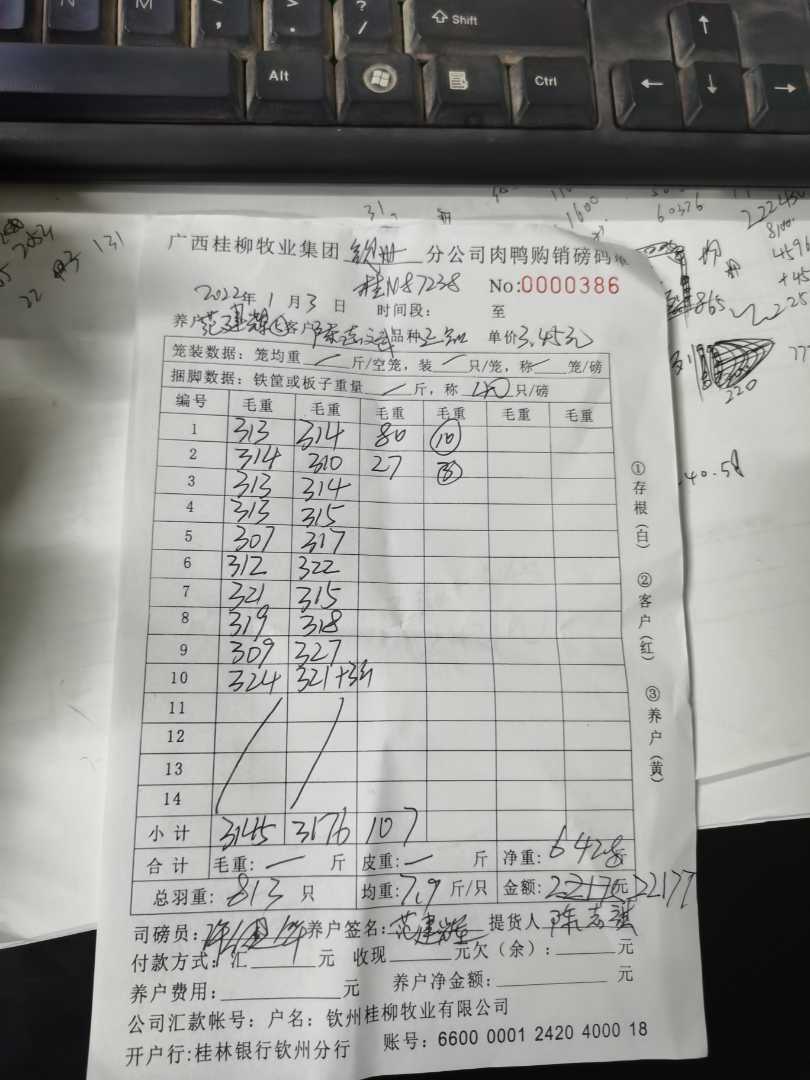 N M , > ? /
Shift
Alt
Ctrl
31,
1600
60376
222450
8100
4596
+45
225
131
865
220
40.58
广西桂柳牧业集团 钦州 分公司肉鸭购销磅码单
桂N87238 No:0000386
2022年1月3日 时间段: 至
养户 范建 客户 品种 单价3.45元
笼装数据:笼均重 — 斤/空笼,装 — 只/笼,称 — 笼/磅
捆脚数据:铁筐或板子重量 — 斤,称 40 只/磅
编号 毛重 毛重 毛重 毛重 毛重 毛重
1 313 314 80 10
2 314 310 27
3 313 314
4 313 315
5 307 317
6 312 322
7 321 315
8 319 318
9 309 327
10 324 321+3
11
12
13
14
小计 3145 3176 107
合计 毛重: — 斤 皮重: — 斤 净重: 6428 斤
总羽重: 813 只 均重: 7.9 斤/只 金额: 22176元 22177
司磅员: 养户签名: 范建 提货人 陈志
付款方式:汇 元 收现 元欠(余): 元
养户费用: 元 养户净金额: 元
公司汇款帐号:户名:钦州桂柳牧业有限公司
开户行:桂林银行钦州分行 账号:6600 0001 2420 4000 18
①存根(白) ②客户(红) ③养户(黄)